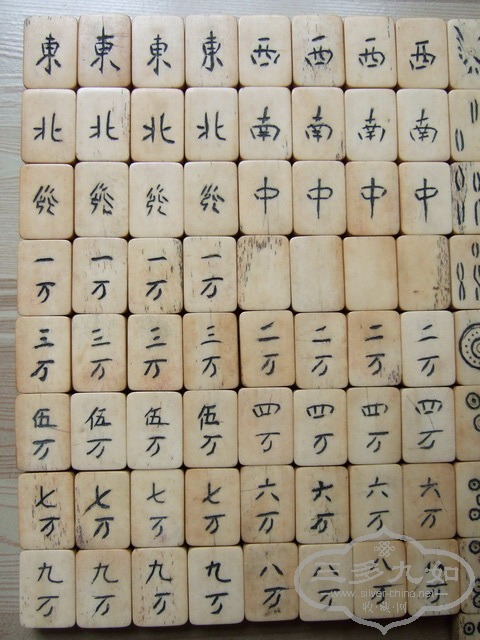 東 東 東 東 西 西 西 西
北 北 北 北 南 南 南 南
發 發 發 發 中 中 中 中
一 一 一 一
万 万 万 万
三 三 三 三 二 二 二 二
万 万 万 万 万 万 万 万
伍 伍 伍 伍 四 四 四 四
万 万 万 万 万 万 万 万
七 七 七 七 六 六 六 六
万 万 万 万 万 万 万 万
九 九 九 九 八 八 八 八
万 万 万 万 万 万
三多九如
www.silver-china.net
收藏网